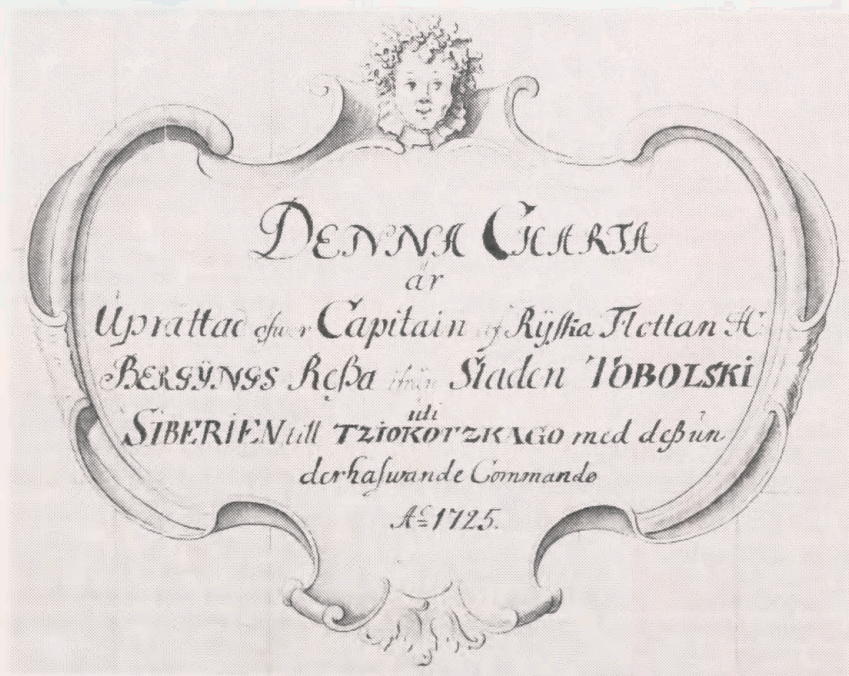 DENNA CHARTA
är
Uprättad ofwer Capitain af Ryßka Flottan H:
BERGŸNGS Reßa ifrån Staden TOBOLSKI
uti
SIBERIEN till TZIOKOTZKAGO med deß ün
derhafwande Commando
Ao 1725.